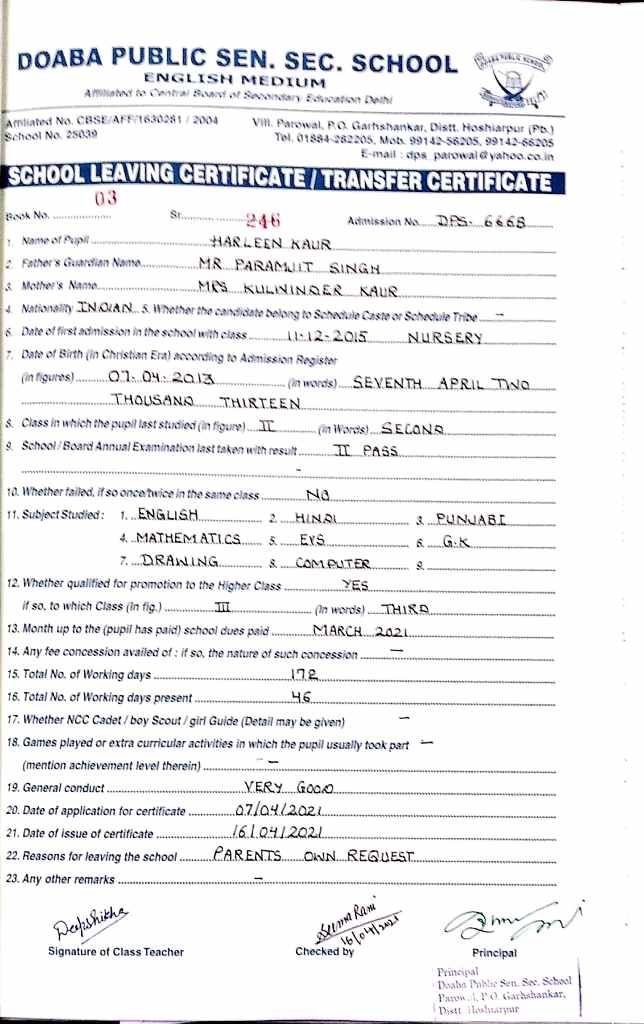 DOABA PUBLIC SEN. SEC. SCHOOL
ENGLISH MEDIUM
Affiliated to Central Board of Secondary Education Delhi
DOABA PUBLIC SCHOOL
Affiliated No. CBSE/AFF/1630281 / 2004
School No. 25039
Vill. Parowal, P.O. Garhshankar, Distt. Hoshiarpur (Pb.)
Tel. 01884-282205, Mob. 99142-56205, 99142-66205
E-mail : dps_parowal@yahoo.co.in
SCHOOL LEAVING CERTIFICATE / TRANSFER CERTIFICATE
Book No. 03 Sr. 246 Admission No. DPS- 6668
1. Name of Pupil HARLEEN KAUR
2. Father's Guardian Name MR PARAMJIT SINGH
3. Mother's Name MRS KULWINDER KAUR
4. Nationality INDIAN 5. Whether the candidate belong to Schedule Caste or Schedule Tribe –
6. Date of first admission in the school with class 11-12-2015 NURSERY
7. Date of Birth (in Christian Era) according to Admission Register
(in figures) 07-04-2013 (in words) SEVENTH APRIL TWO
THOUSAND THIRTEEN
8. Class in which the pupil last studied (in figure) II (in Words) SECOND
9. School / Board Annual Examination last taken with result II PASS
–
10. Whether failed, if so once/twice in the same class NO
11. Subject Studied : 1. ENGLISH 2. HINDI 3. PUNJABI
4. MATHEMATICS 5. EVS 6. G.K
7. DRAWING 8. COMPUTER 9.
12. Whether qualified for promotion to the Higher Class YES
if so, to which Class (In fig.) III (In words) THIRD
13. Month up to the (pupil has paid) school dues paid MARCH 2021
14. Any fee concession availed of : if so, the nature of such concession –
15. Total No. of Working days 172
16. Total No. of Working days present 46
17. Whether NCC Cadet / boy Scout / girl Guide (Detail may be given) –
18. Games played or extra curricular activities in which the pupil usually took part –
(mention achievement level therein) –
19. General conduct VERY GOOD
20. Date of application for certificate 07/04/2021
21. Date of issue of certificate 16/04/2021
22. Reasons for leaving the school PARENTS OWN REQUEST
23. Any other remarks –
Deepshikha
Seema Rani
16/04/2021
Signature of Class Teacher Checked by Principal
Principal
Doaba Public Sen. Sec. School
Parowal, P.O. Garhshankar,
Distt. Hoshiarpur